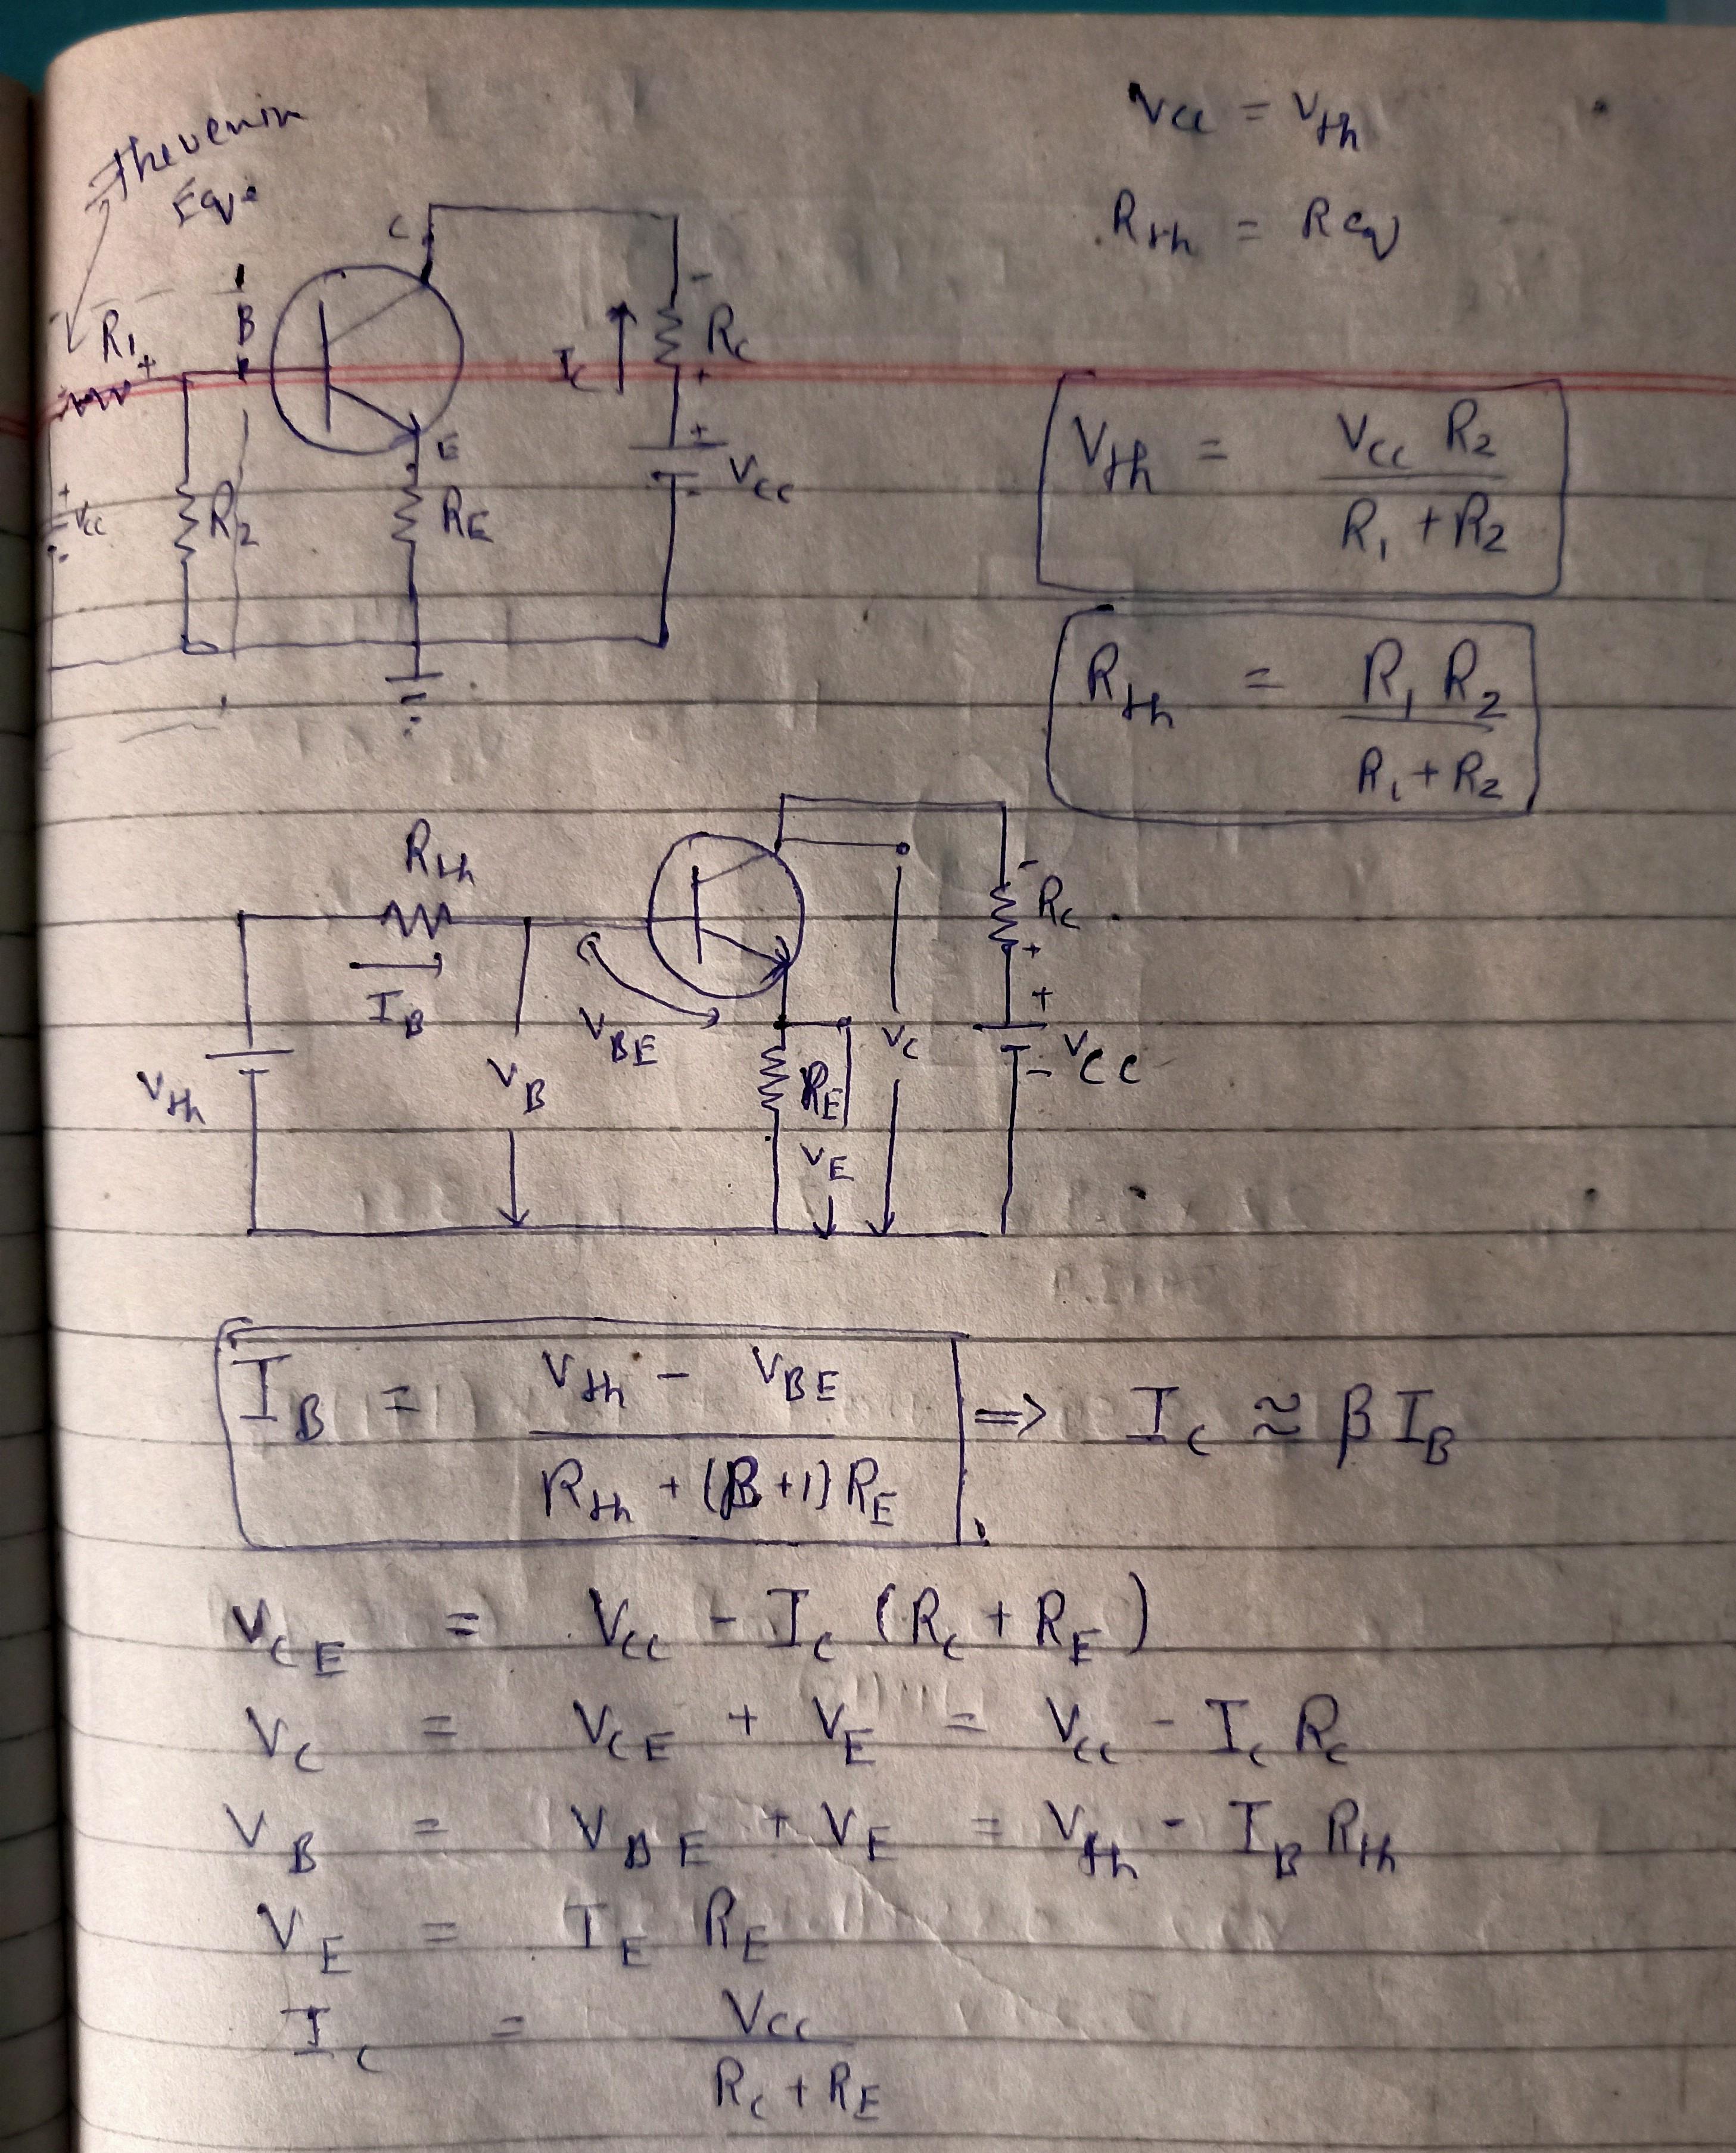 Thevenin
Eqv
Vcc = Vth
Rth = Req
C
R1
+
B
-
IC
RC
+
+
E
VCC
+
VCC
-
R2
RE
Vth = VCC R2 / R1 + R2
Rth = R1 R2 / R1 + R2
Rth
-
RC
+
IB
VBE
+
VC
VCC
-
Vth
VB
RE
VE
IB = Vth - VBE / Rth + (β+1) RE => IC ≈ β IB
VCE = VCC - IC (RC + RE)
VC = VCE + VE = VCC - IC RC
VB = VBE + VE = Vth - IB Rth
VE = IE RE
IC = VCC / RC + RE